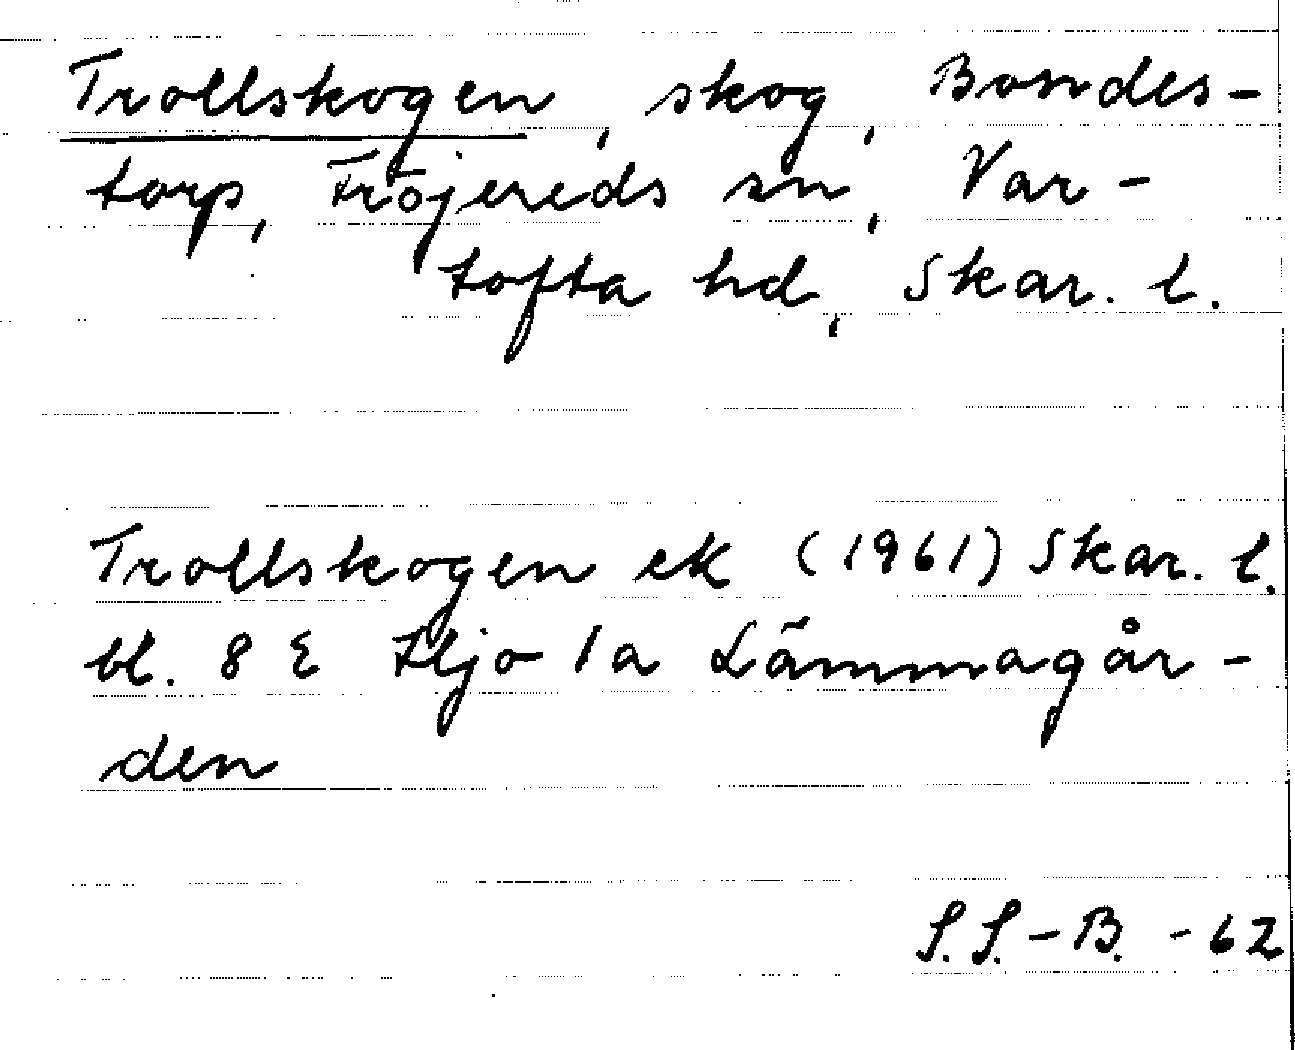 Trollskogen, skog, Bondes-
torp, Fröjereds sn, Var-
tofta hd, Skar. l.
Trollskogen ek (1961) Skar. l.
bl. 8 E Hjo 1a Lämmagår-
den
S.S-B. -62